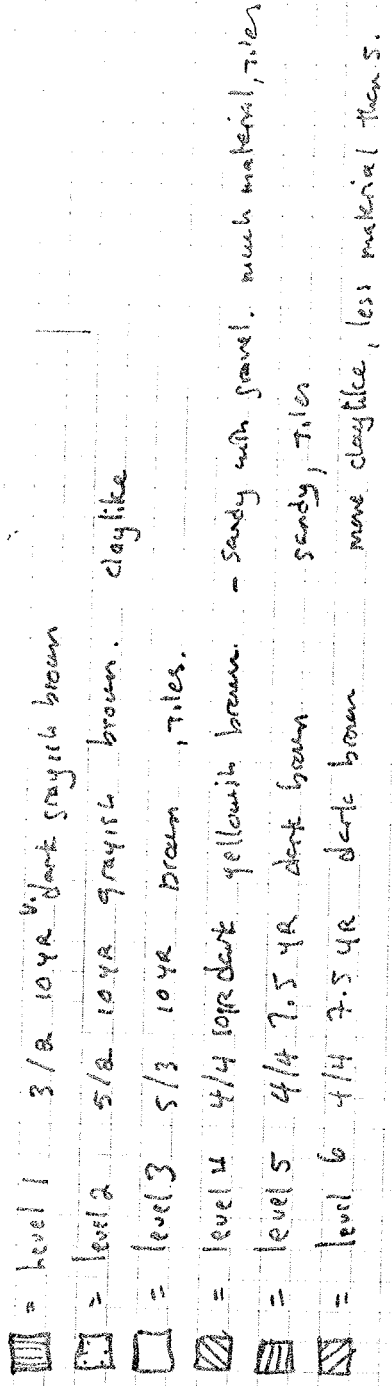 = Level 1 3/2 10YR v. dark grayish brown
= level 2 5/2 10YR grayish brown. claylike
= level 3 5/3 10YR brown, tiles.
= level 4 4/4 10YR dark yellowish brown. - sandy with gravel. much material, tiles
= level 5 4/4 7.5 YR dark brown sandy, tiles
= level 6 4/4 7.5 YR dark brown more claylike, less material than 5.